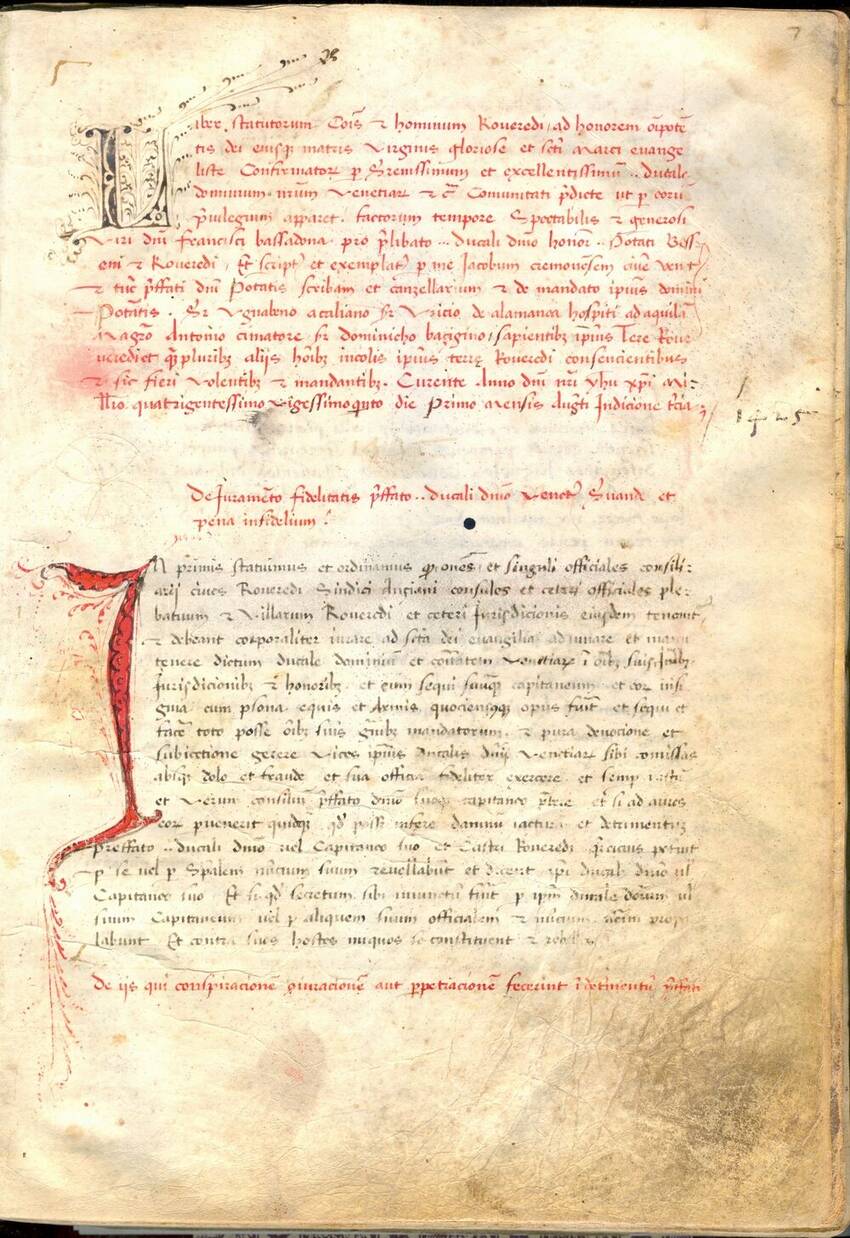 5
7
Liber statutorum Cois̄ ⁊ hominum Roueredi, ad honorem oīpotē
tis dei eiusqȝ matris Virginis gloriose et scti Marci euange
liste Confirmatorꝝ ꝑ Serenissimum et excellentissimū .. ducale
dominium nr̄um Venetiarꝝ ⁊ c̄ Comunitati p̄dicte ut ꝑ eorū
p̄iuilegium apparet. factorum tempore Spectabilis ⁊ generosi
Viri dn̄i francisci bassadona pro p̄libato .. ducali dn̄io honorꝫ .. Potati
⁊ Roueredi, Et script et exemplat ꝑ me Jacobum cremonēsem ciuē
⁊ tūc p̄ffati dn̄i Potatis scribam et canzellarium ⁊ de mandato ip̄ius domini
Potatis. Sr Vgnabeno acaliano sr Vricio de alamanea hospiti ad aquilā
Magr̄o Antonio cimatore sr dominicho bazigino, sapientibȝ ip̄ius Tere
qȝ pluribȝ alijs hōibȝ incolis ip̄ius terrę Roueredi consencientibus
⁊ sic fieri volentibȝ ⁊ mandantibȝ. Curente Anno dn̄i nr̄i yhu xp̄i Mi-
ll̄io quatrigentessimo vigessimoqnto die primo mensis Augti Indicione t̄cia
1425
De Juramēto fidelitatis p̄ffato .. ducali dn̄io Venet Suando et
pena infidelium
IN primis statuimus et ordinamus qꝫ om̄es et singuli officiales consili-
arij ciues Roueredi Sindici Anziani consules et ceteri officiales ple-
batuum ⁊ Villarum Roueredi et ceteri Jurisdicionis eiusdem tenent
⁊ debeant corporaliter iurare ad scta dei euangilia adiuuare et manu
tenere dictum ducale dominiū et com̄tatem Venetiarꝝ ī oībȝ suis
Jurisdicionibȝ ⁊ honoribȝ. et eum sequi suūqȝ capitaneum et eorꝝ insi
gnia cum ꝑsona equis et Armis, quociensqȝ opus fuīt et sequi et
facē toto posse oībȝ suis mandatorum. ⁊ pura deuocione et
subiectione gerere vices ip̄ius ducalis dn̄ij Venetiarꝝ sibi comissas
absqȝ dolo et fraude et sua officia fideliter exercere et semp
et verum consiliū p̄ffato dn̄io suoqȝ capitaneo et si ad aures
eorꝝ ꝑuenerit quidqȝ qd posset inferre damnū iacturā et detrimentū
preffato .. ducali dn̄io vel Capitaneo suo et Castri Roueredi
ꝑ se vel ꝑ Spālem nūcium suum reuellabūt et dicent ip̄i ducali dn̄io ul
Capitaneo suo Et si qd secretum sibi fuīt ꝑ ip̄m ducale dominiū ul
suum Capitaneum vel ꝑ aliquem suum officialem ⁊ nūcium
labunt Et contra suos hostes iniquos se constituent ⁊
De ijs qui conspiracionē ꝯiuracionē aut ꝑpetracionē fecerint ī detrimentū p̄ffati